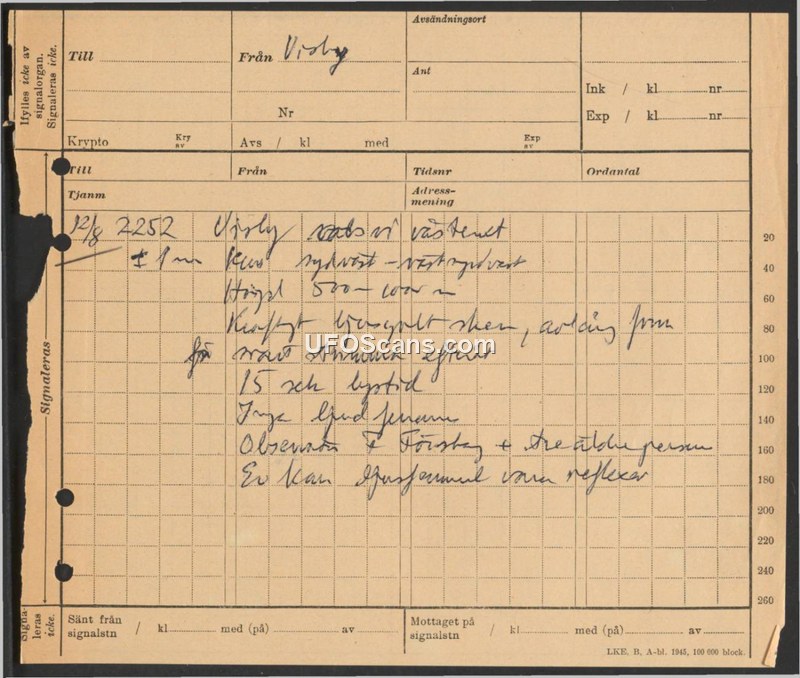 Ifylles icke av
signalorgan.
Signaleras icke.
Avsändningsort
Till
Från Visby
Ant
Ink / kl nr
Nr
Exp / kl nr
Krypto Kry av
Avs / kl med Exp av
Till Från Tidsnr Ordantal
Tjanm Adress-
mening
12/8 2252 Visby
± 1 m sydväst - västsydväst
20
40
Höjd 500- 1000 m
60
Kraftigt sken, avlång form
80
100
UFOScans.com
15 sek lystid
120
Inga ljud
140
+ tre äldre
160
Ev kan vara reflexer
180
200
220
240
260
Signaleras
Signa-
leras
icke.
Sänt från
signalstn / kl med (på) av
Mottaget på
signalstn / kl med (på) av
LKE. B. A-bl. 1945, 100 000 block.